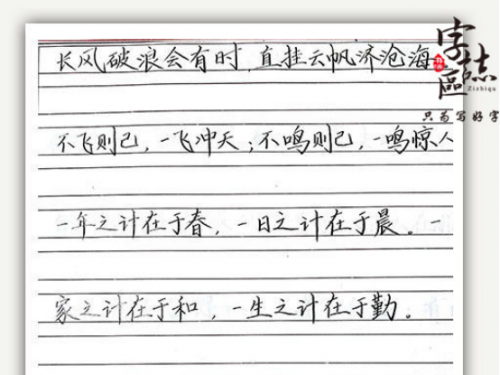 长风破浪会有时,直挂云帆济沧海
不飞则已,一飞冲天;不鸣则已,一鸣惊人
一年之计在于春,一日之计在于晨。一
家之计在于和,一生之计在于勤。
字志區
Zizhiqu
只为写好字